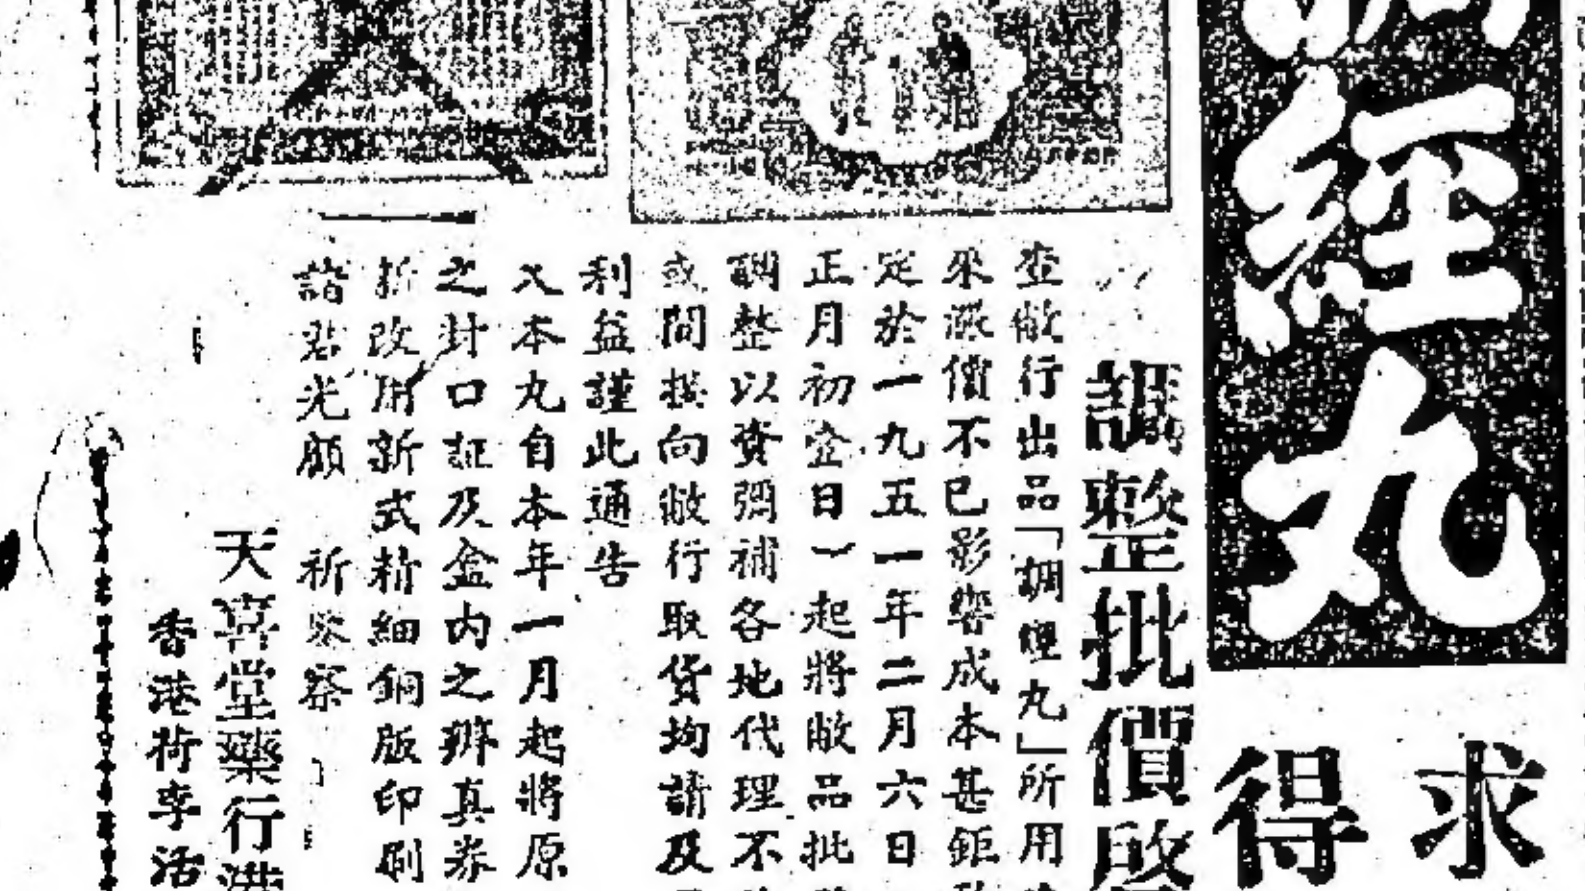 調經丸
求
得
調整批價啟
查敝行出品「調經丸」所用
來漲價不已影響成本甚鉅
定於一九五一年二月六日
正月初
日一起將敝品批
調整以資彌補各地代理不
或間接向敝行取貨均請及
利益謹此通告
又本丸自本年一月起將原
之封口証及盒內之辨真券
新改用新式精細銅版印刷
諸君光顧 祈 察
天喜堂藥行港
香港荷李活